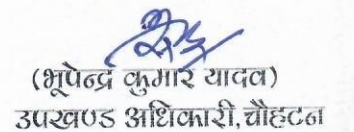 (भूपेन्द्र कुमार यादव)
उपखण्ड अधिकारी,चौहटन